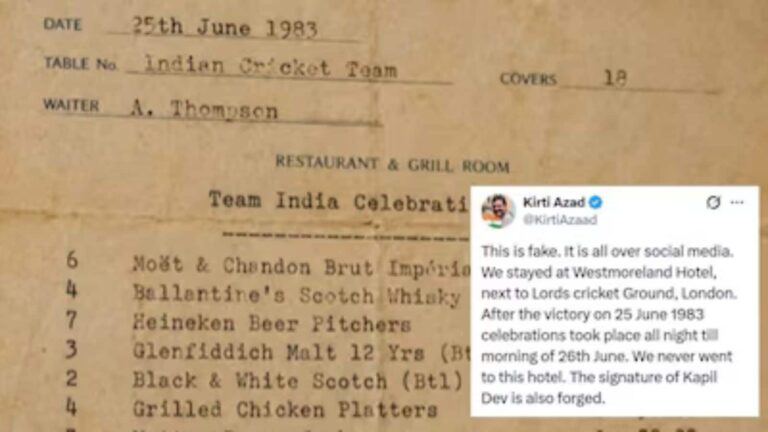 DATE 25th June 1983
TABLE No. Indian Cricket Team
COVERS 18
WAITER A. Thompson
RESTAURANT & GRILL ROOM
Team India Celebrati
6 Moët & Chandon Brut Impéria
4 Ballantine's Scotch Whisky
7 Heineken Beer Pitchers
3 Glenfiddich Malt 12 Yrs (Bt
2 Black & White Scotch (Btl)
4 Grilled Chicken Platters
Kirti Azad
@KirtiAzaad
This is fake. It is all over social media.
We stayed at Westmoreland Hotel,
next to Lords cricket Ground, London.
After the victory on 25 June 1983
celebrations took place all night till
morning of 26th June. We never went
to this hotel. The signature of Kapil
Dev is also forged.